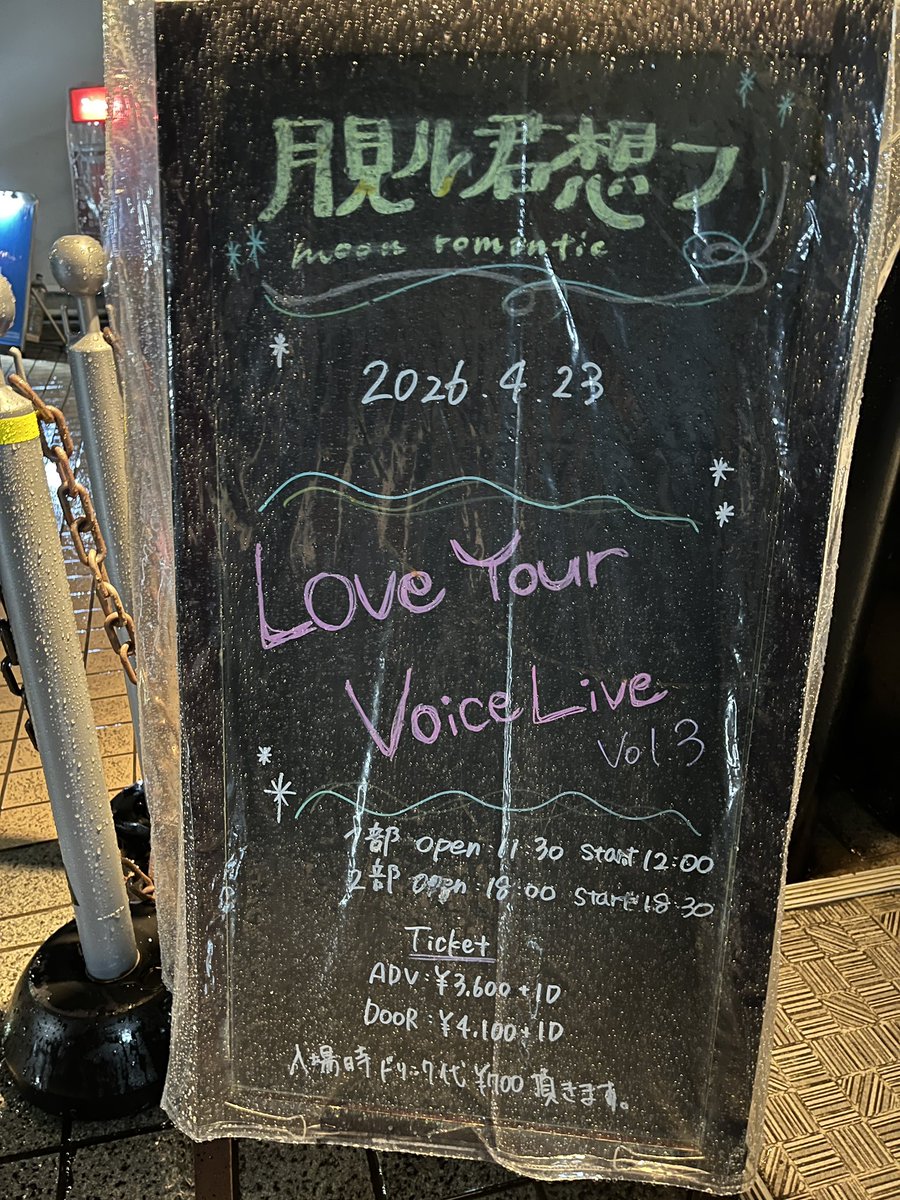 月見ル君想フ
moon romantic
2026.4.23
Love Your
Voice Live
Vol.3
1部 open 11:30 start 12:00
2部 open 18:00 start 18:30
Ticket
ADV:¥3,600+1D
DOOR:¥4,100+1D
入場時ドリンク代¥700頂きます。